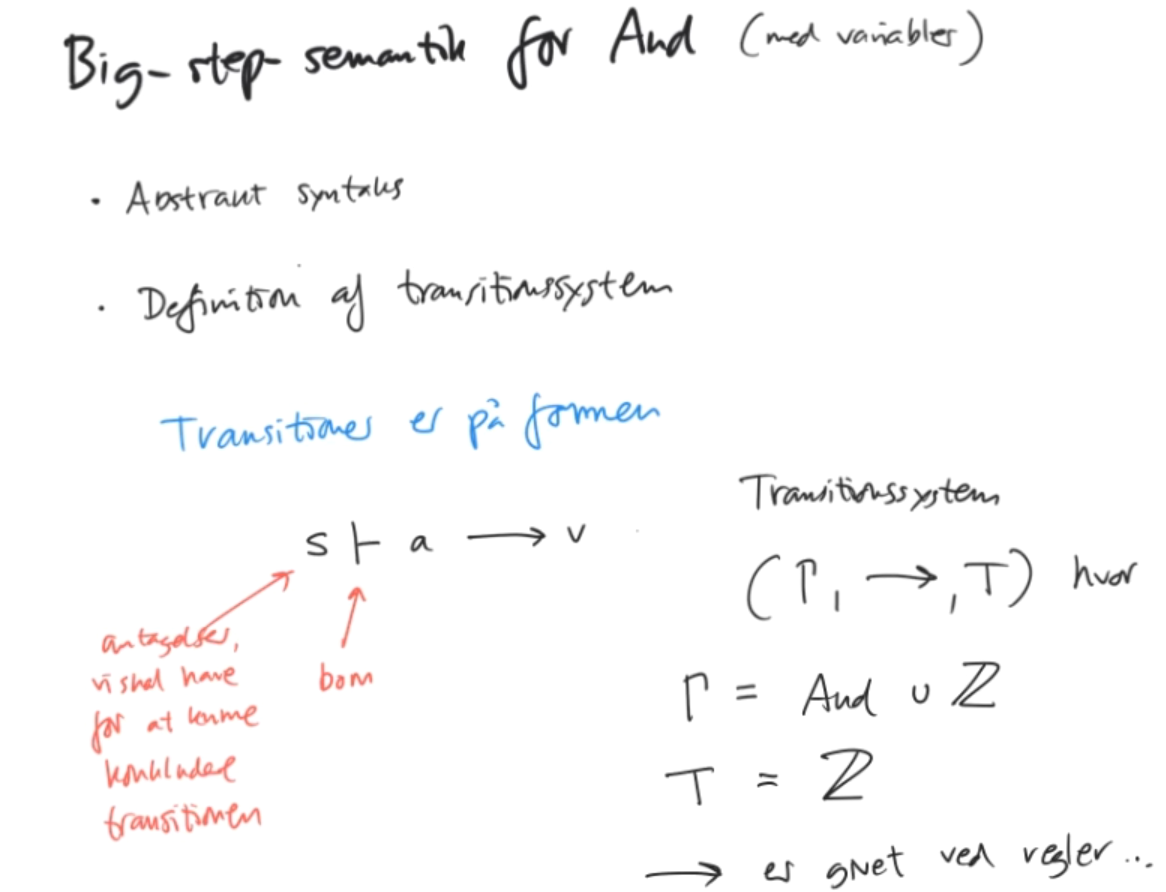 Big-step-semantik for And (med variabler)
· Abstrakt syntaks
· Definition af transitionssystem
Transitioner er på formen
s ⊢ a → v
antagelser,
vi skal have
for at kunne
konkludere
transitionen
bom
Transitionssystem
(Γ, →, T) hvor
Γ = And ∪ ℤ
T = ℤ
→ er givet ved regler...